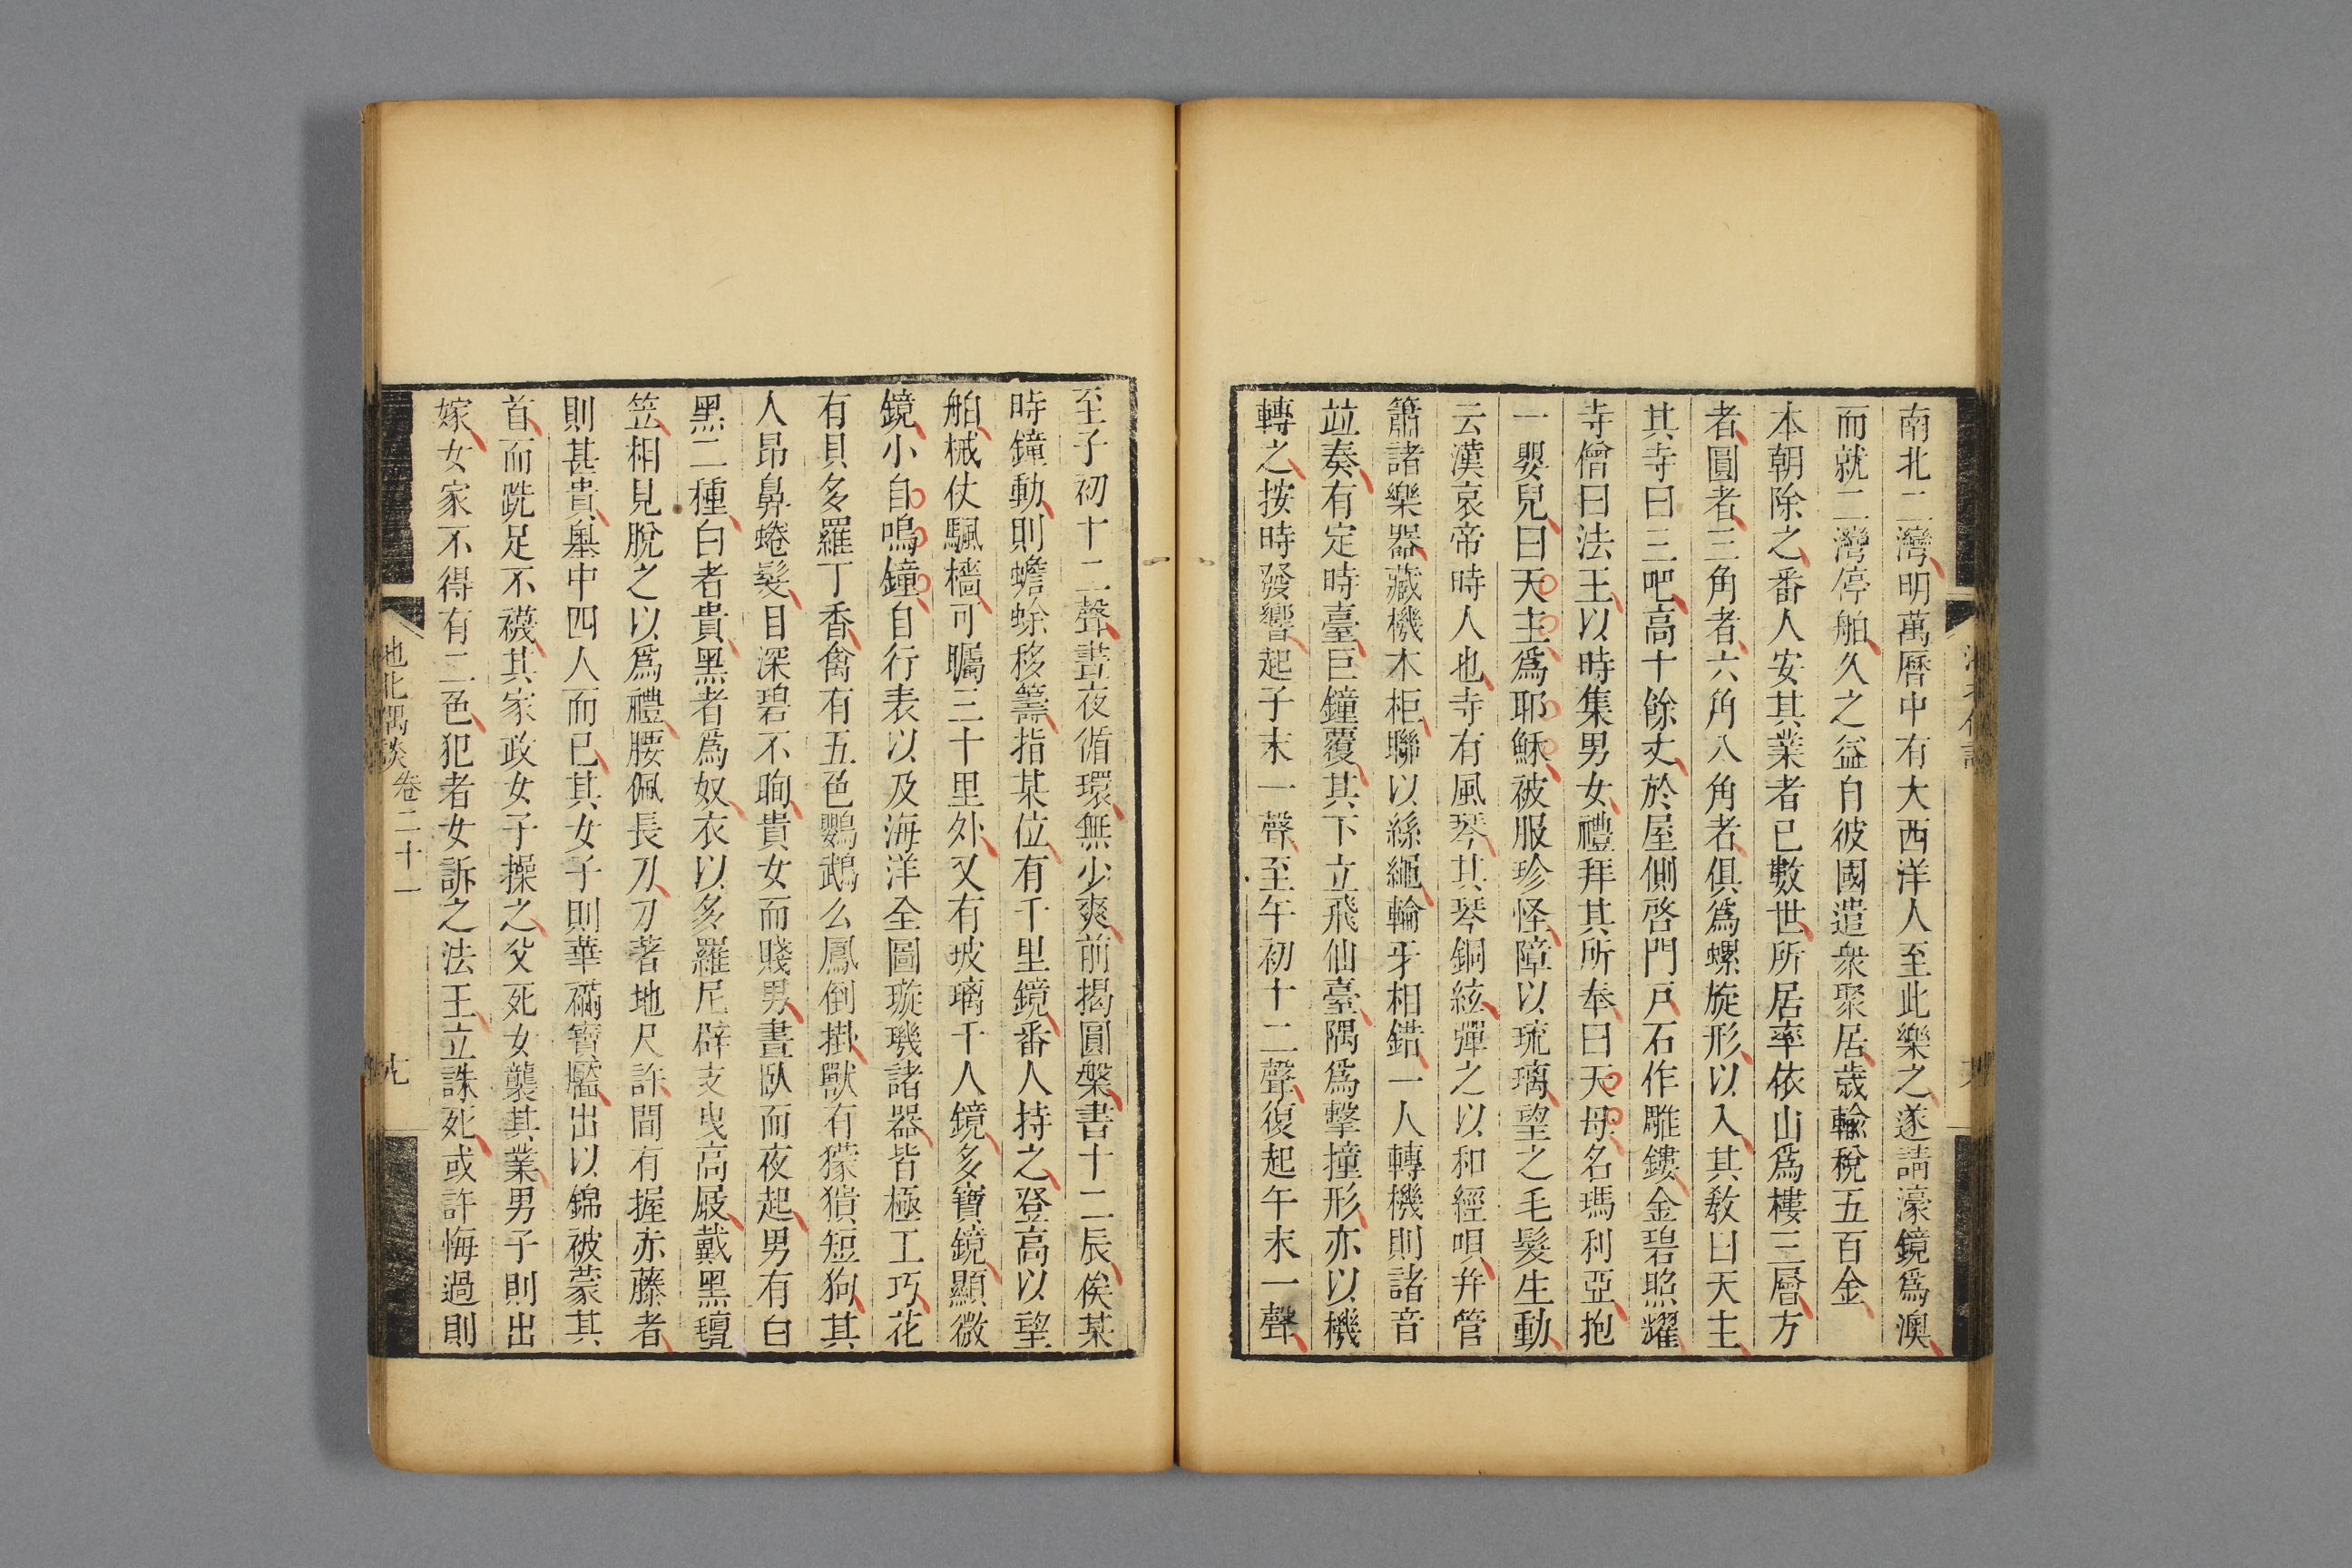 南北二灣明萬曆中有大西洋人至此樂之遂請濠鏡爲澳
而就二灣停舶久之益自彼國遣衆聚居歲輸稅五百金
本朝除之番人安其業者已數世所居率依山爲樓三層方
者圓者三角者六角八角者俱爲螺旋形以入其敎曰天主
其寺曰三吧高十餘丈於屋側啓門戸石作雕鏤金碧照耀
寺僧曰法王以時集男女禮拜其所奉曰天母名瑪利亞抱
一嬰兒曰天主爲耶穌被服珍怪障以琉璃望之毛髮生動
云漢哀帝時人也寺有風琴其琴銅絃彈之以和經唄幷管
簫諸樂器藏機木柜聯以絲繩輪牙相錯一人轉機則諸音
竝奏有定時臺巨鐘覆其下立飛仙臺隅爲擊撞形亦以機
轉之按時發響起子末一聲至午初十二聲復起午末一聲
至子初十二聲晝夜循環無少爽前揭圓槃書十二辰俟某
時鐘動則蟾蜍移籌指某位有千里鏡番人持之登高以望
舶械仗颿檣可矚三十里外又有玻璃千人鏡多寶鏡顯微
鏡小自鳴鐘自行表以及海洋全圖璇璣諸器皆極工巧花
有貝多羅丁香禽有五色鸚鵡么鳳倒掛獸有獴𤡬短狗其
人昂鼻蜷髮目深碧不眴貴女而賤男晝臥而夜起男有白
黑二種白者貴黑者爲奴衣以多羅尼辟支曳高屐戴黑氊
笠相見脫之以爲禮腰佩長刀刀著地尺許間有握赤藤者
則甚貴轝中四人而已其女子則華襔寶靨出以錦被蒙其
首而跣足不襪其家政女子操之父死女襲其業男子則出
嫁女家不得有二色犯者女訴之法王立誅死或許悔過則
池北偶談 卷二十一